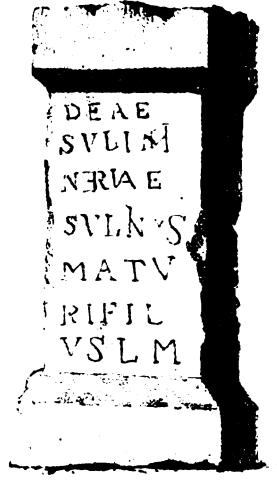 DEAE
SVLIMI
NERVAE
SVLINVS
MATV
RIFIL
VSLM